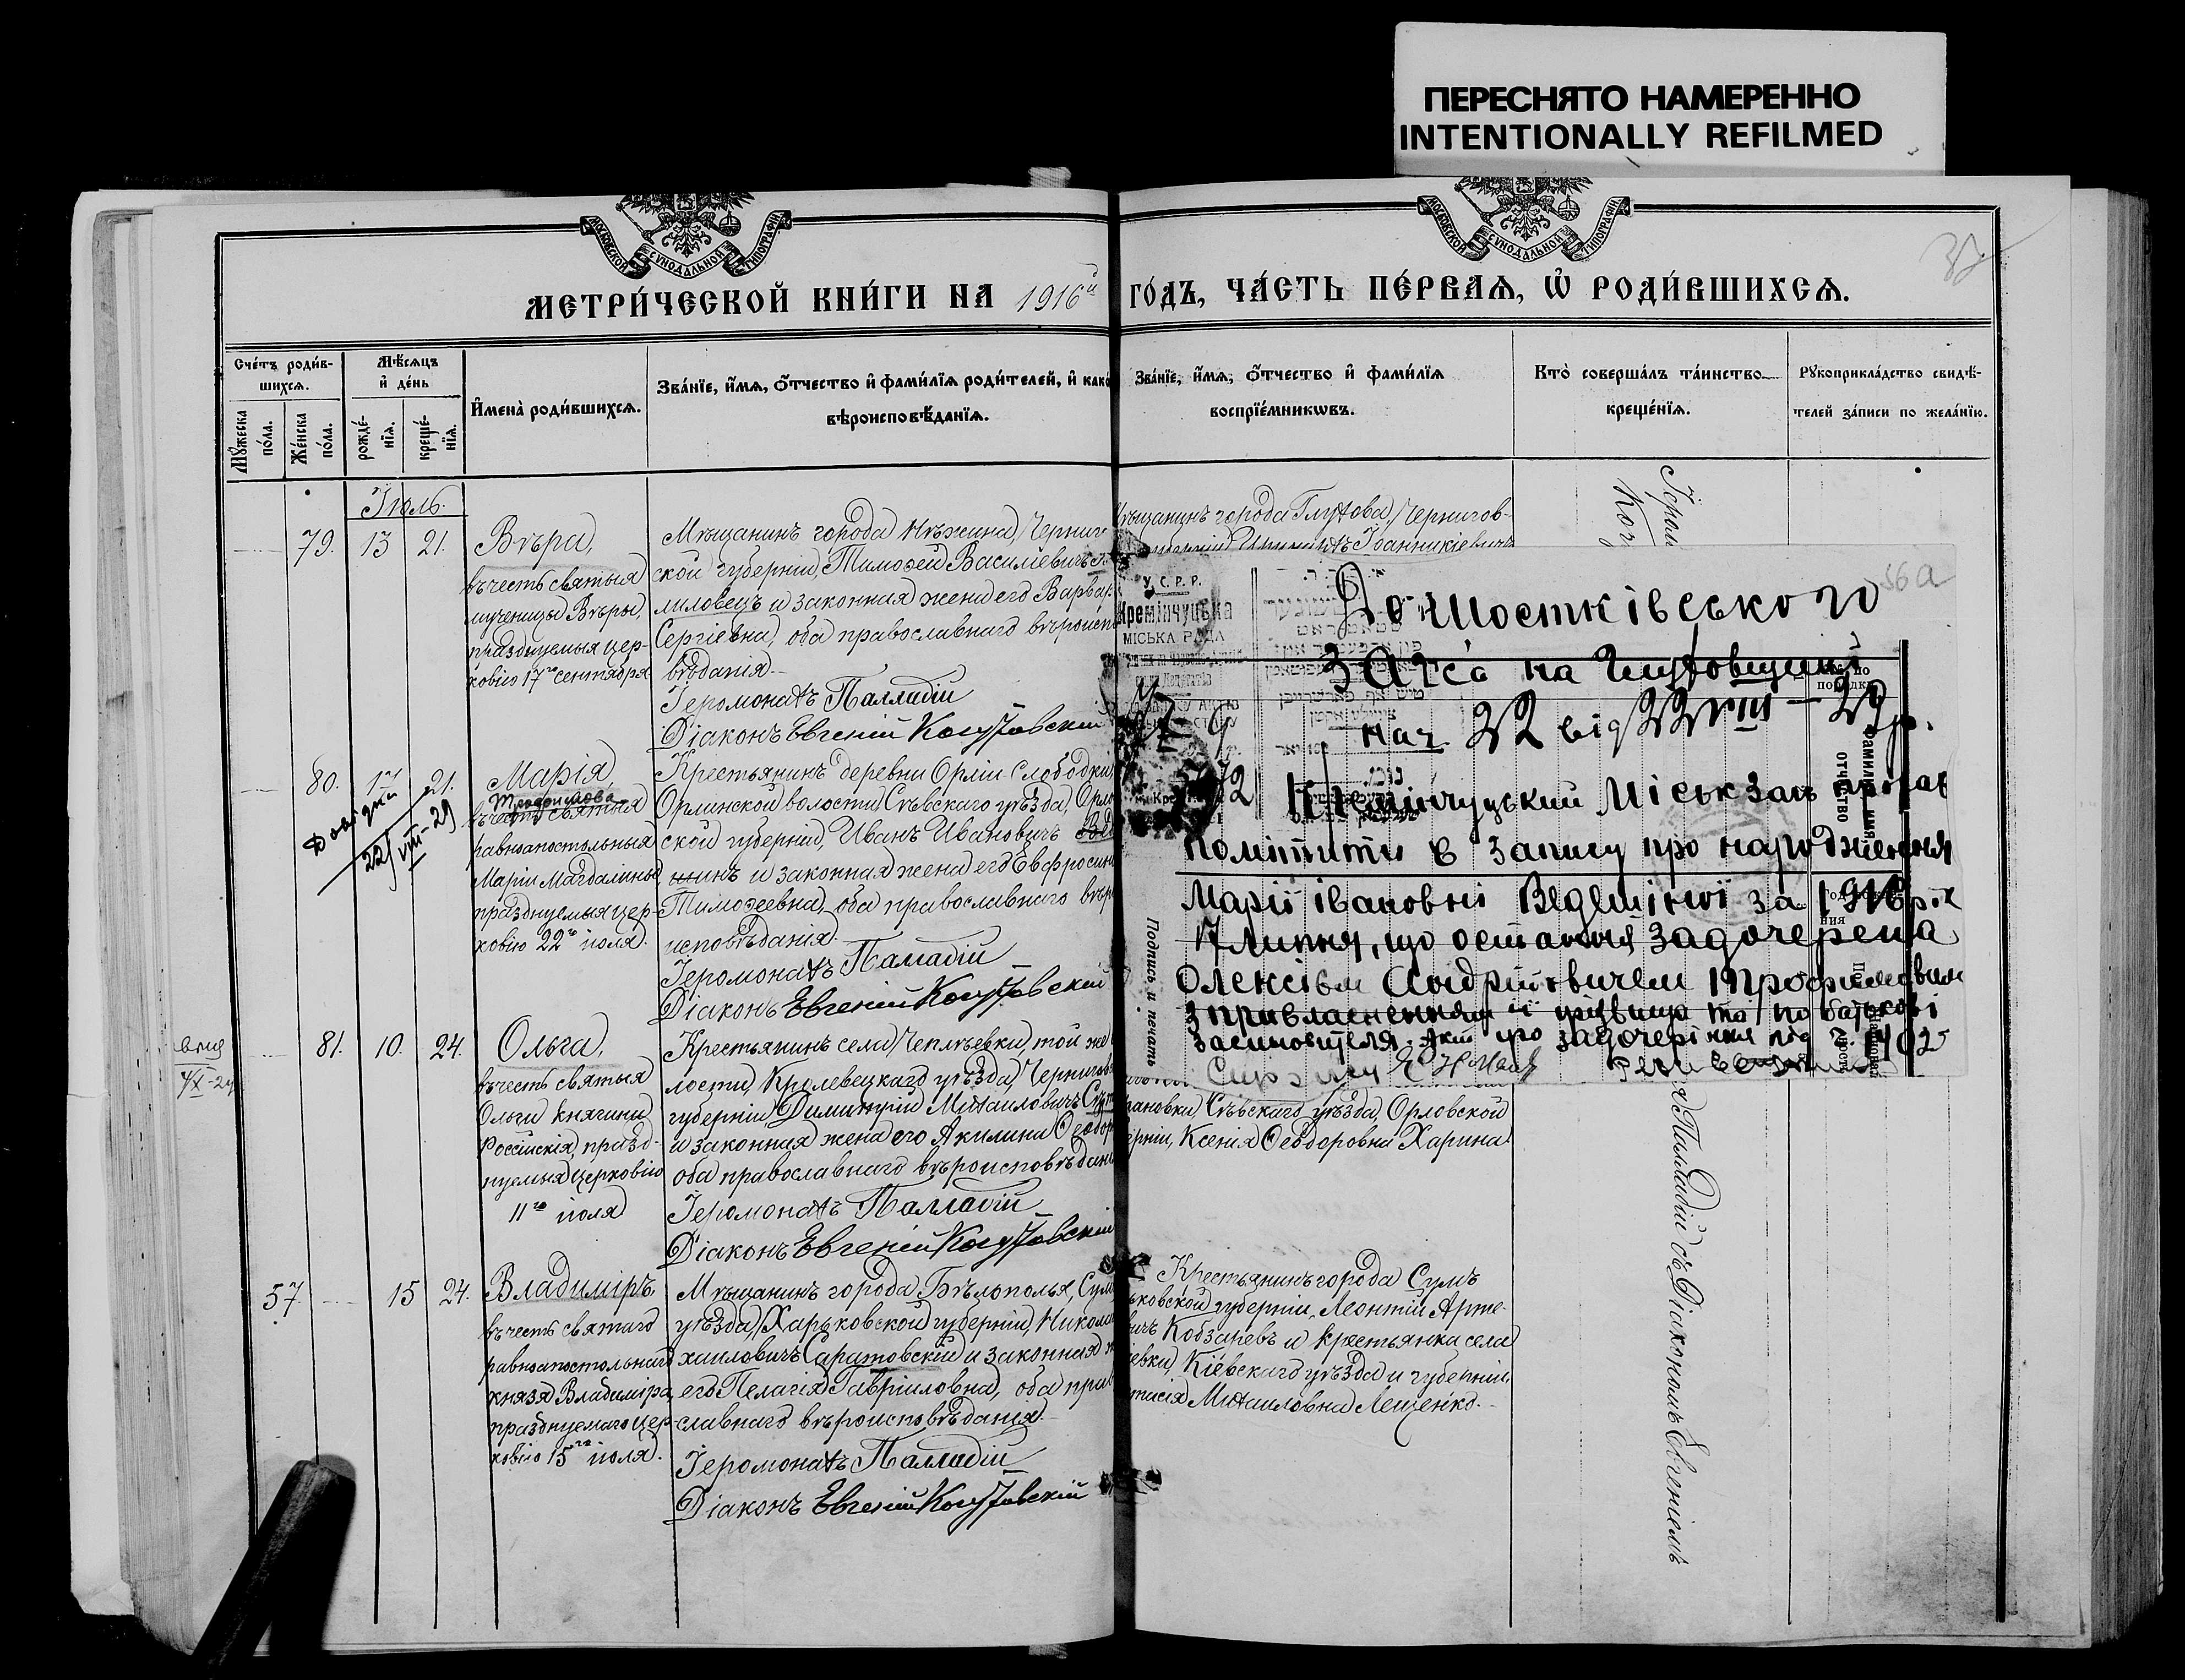 ПЕРЕСНЯТО НАМЕРЕННО
INTENTIONALLY REFILMED
МОСКОВСКОЙ СѴНОДАЛЬНОЙ ТИПОГРАФІИ
МОСКОВСКОЙ СѴНОДАЛЬНОЙ ТИПОГРАФІИ
МЕТРИ́ЧЕСКОЙ КНИ́ГИ НА 1916й ГО́ДЪ, ЧА́СТЬ ПЕ́РВАѦ, Ѡ҆ РОДИ́ВШИХСѦ.
Счéтъ роди́в-
шихсѧ.
Мꙋ́жеска по́ла.
Жéнска по́ла.
Мѣ́сѧцъ
и҆ дéнь
рождé-
нїѧ.
крещé-
нїѧ.
И҆мена̀ роди́вшихсѧ.
Зва́нїе, и҆́мѧ, ѻ҆́тчество и҆ фами́лїѧ роди́телей, и҆ како
вѣроисповѣ́данїѧ.
Зва́нїе, и҆́мѧ, ѻ҆́тчество и҆ фами́лїѧ
воспрїéмникѡвъ.
Кто̀ соверша́лъ та́инство
крещéнїѧ.
Рꙋкоприкла́дство свидѣ́-
телей за́писи по жела́нїю.
Іюль.
79. 13 21. Вѣра,
въ честь святыя
мученицы Вѣры,
празднуемыя цер-
ковію 17го сентября
Мѣщанинъ города Нѣжина, Чернигов
ской губерніи, Тимоѳей Василіевичъ
миловецъ и законная жена его Варвар
Сергіевна, оба православнаго вѣроиспо
вѣданія.
Іеромонахъ Палладій
Діаконъ Евгеній
Мѣщанинъ города Глухова, Чернигов-
Іоанникіевичъ
80. 17 21. Марія,
Трофимова
въ честь святыя
равноапостольныя
Маріи Магдалины,
празднуемыя цер-
ковію 22го іюля.
Довідка
22/VIII-29
Крестьянинъ деревни Орліи Слободки,
Орлинской волости, Сѣвскаго уѣзда, Орло
ской губерніи, Иванъ Ивановичъ Вед
шинъ и законная жена его Евфросин
Тимоѳеевна, оба православнаго вѣро
исповѣданія.
Іеромонахъ Палладій
Діаконъ Евгеній
81. 10. 24. Ольга,
въ честь святыя
Ольги княгини
Россійскія, празд-
нуемыя церковію
11го іюля
Крестьянинъ села Чеплѣевки, той же
лости, Кролевецкаго уѣзда, Черниговс
губерніи, Димитрій Михаиловичъ
и законная жена его Акилина Ѳеодор
оба православнаго вѣроисповѣдані
Іеромонахъ Палладій
Діаконъ Евгеній
рановки, Сѣвскаго уѣзда, Орловской
ерніи, Ксенія Ѳеодоровна Харина.
57. 15 24. Владиміръ,
въ честь святаго
равноапостольнаго
князя Владиміра,
празднуемаго цер-
ковію 15го іюля.
Мѣщанинъ города Бѣлополья, Сум
уѣзда, Харьковской губерніи, Никола
хаиловичъ Саратовскій и законная ж
его Пелагія Гавріиловна, оба прав
славнаго вѣроисповѣданія.
Іеромонахъ Палладій
Діаконъ Евгеній
Крестьянинъ города Сумъ
ьковской губерніи, Леонтій Арте-
вичъ Кобзаревъ и крестьянка села
евки, Кіевскаго уѣзда и губерніи,
тасія Михаиловна Лещенко.
Палладій съ Діакономъ Евгеніемъ
56а
У. С. Р. Р.
Кремінчуцька
МІСЬКА РАДА
До Шостківського
ЗАГСа на Глухівщині
на ч 22 від 22 VIII - 29 р.
Кремінчуцький Міськзаг прохає
помітити в запису про народження
Марії Івановні Ведешіної за 1916 рік
17 липня, що остання задочерена
Олексієм Андрійовичем Трофимовим
з привласненням її прізвища та по батькові
засиновителя. Акт про задочеріння під
Подпись и печать
Фамилия, имя
отчество